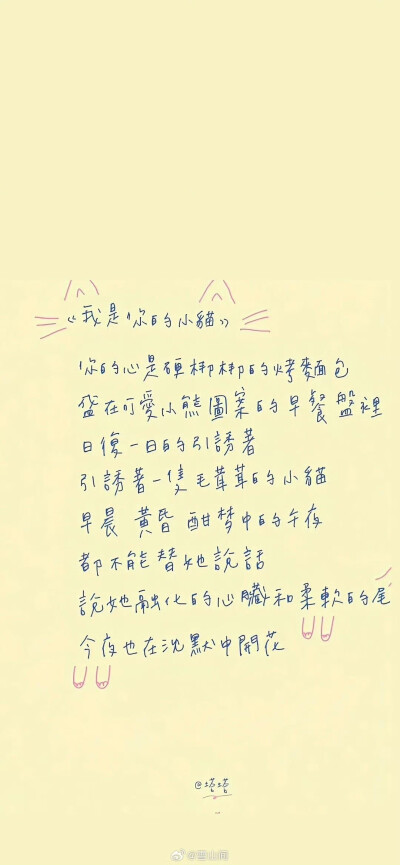 《我是你的小貓》
你的心是硬梆梆的烤麵包
盛在可愛小熊圖案的早餐盤裡
日復一日的引誘著
引誘著一隻毛茸茸的小貓
早晨 黃昏 酣梦中的午夜
都不能替她說話
說她融化的心臟和柔軟的尾
今夜也在沈默中開花
@塔塔
@雪山间